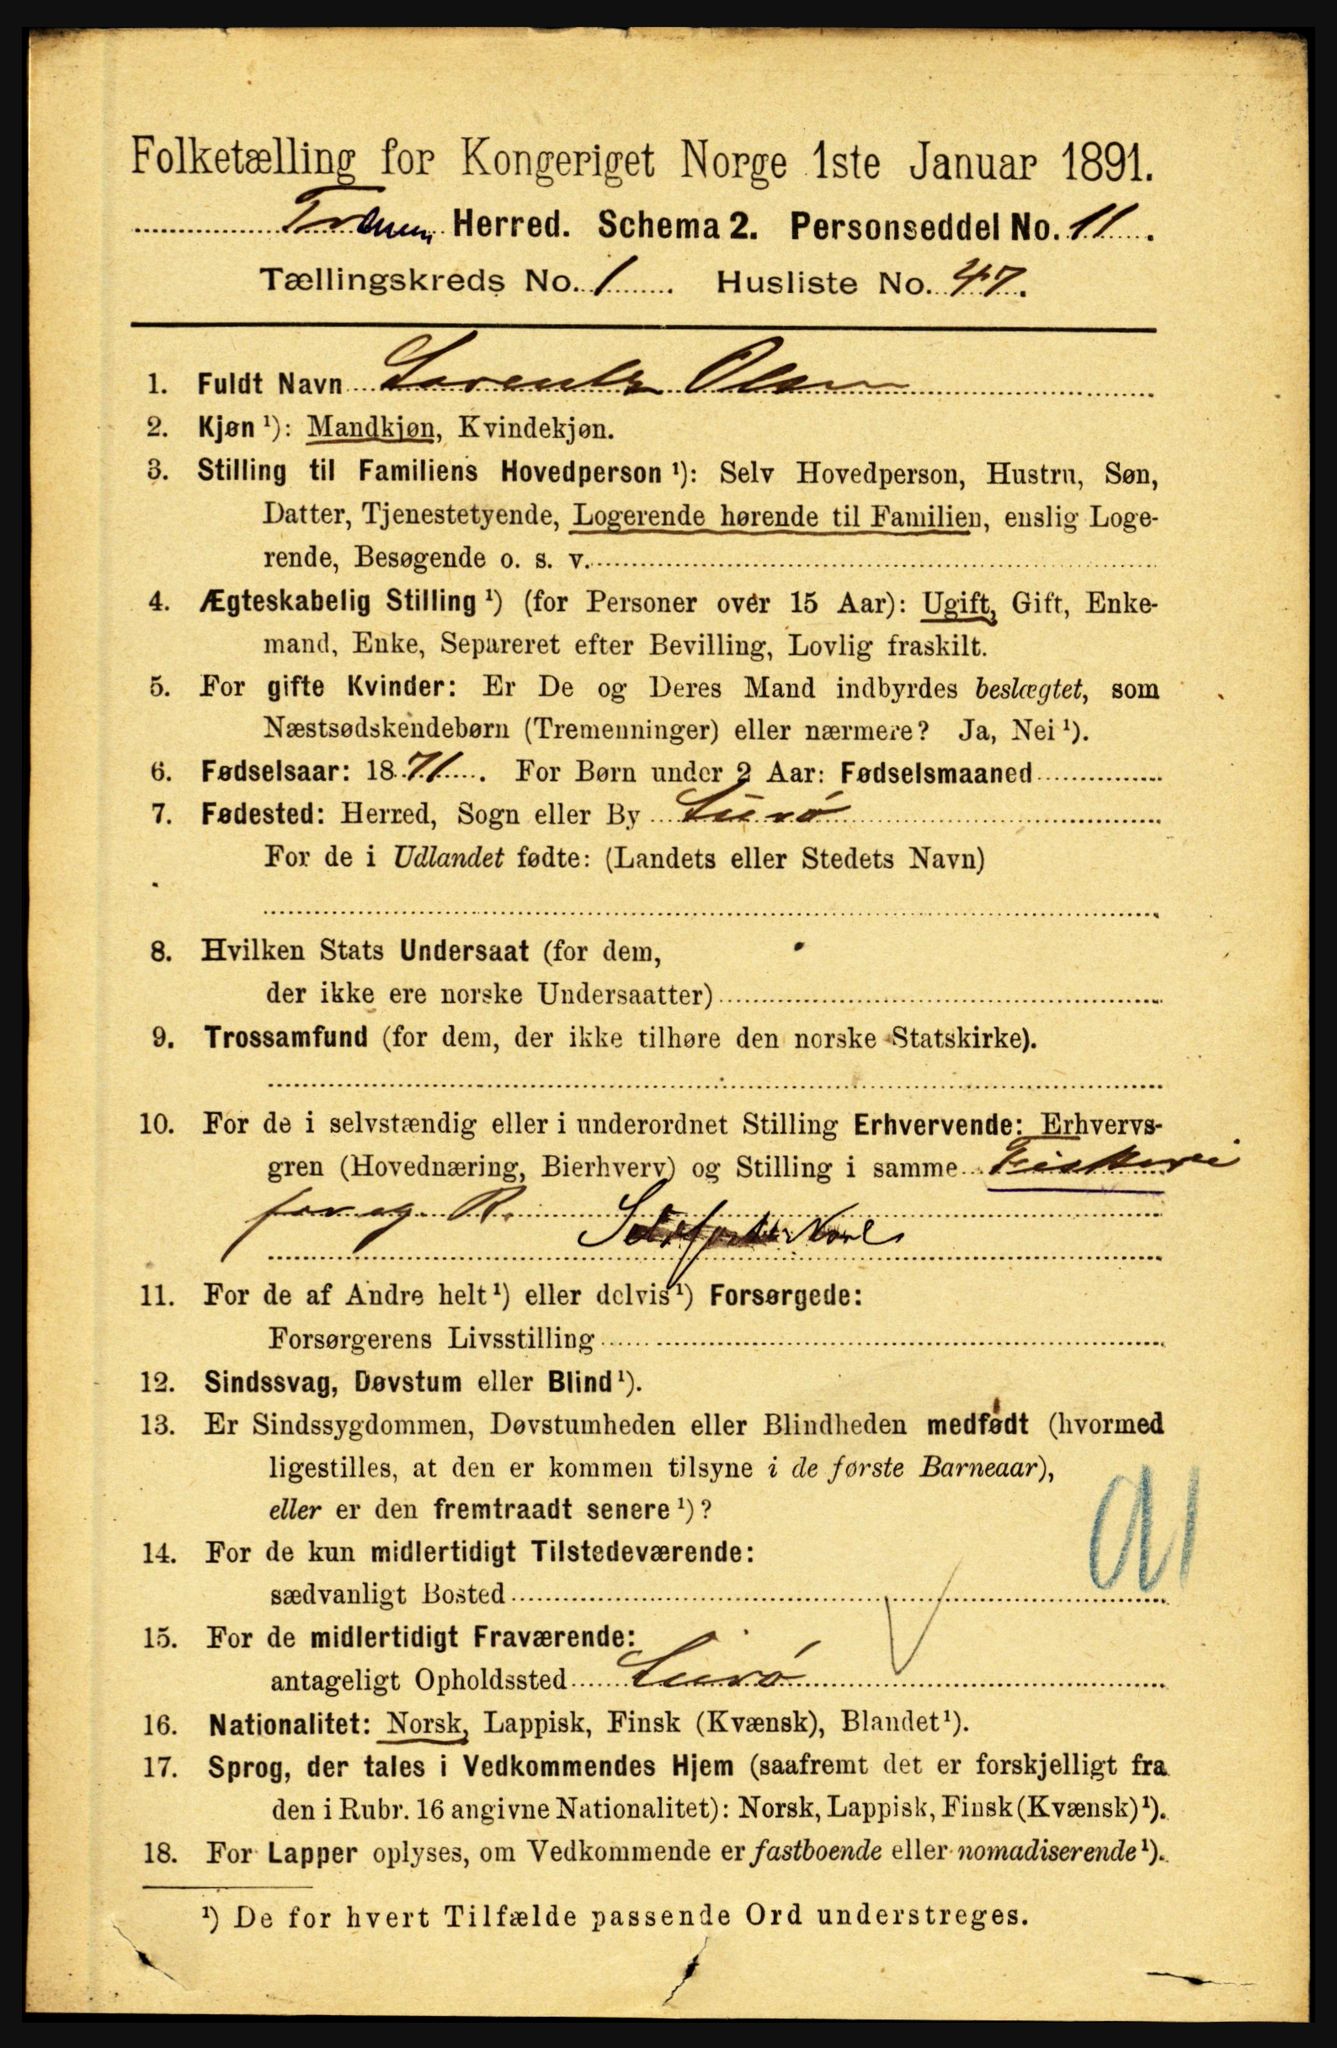 Folketælling for Kongeriget Norge 1ste Januar 1891.
Trænen Herred. Schema 2. Personseddel No. 11.
Tællingskreds No. 1. Husliste No. 47.
1. Fuldt Navn Lorents Olsen
2. Kjøn ¹): Mandkjøn, Kvindekjøn.
3. Stilling til Familiens Hovedperson ¹): Selv Hovedperson, Hustru, Søn,
Datter, Tjenestetyende, Logerende hørende til Familien, enslig Loge-
rende, Besøgende o. s. v.
4. Ægteskabelig Stilling ¹) (for Personer over 15 Aar): Ugift, Gift, Enke-
mand, Enke, Separeret efter Bevilling, Lovlig fraskilt.
5. For gifte Kvinder: Er De og Deres Mand indbyrdes beslægtet, som
Næstsødskendebørn (Tremenninger) eller nærmere? Ja, Nei ¹).
6. Fødselsaar: 1871. For Børn under 2 Aar: Fødselsmaaned
7. Fødested: Herred, Sogn eller By Lurø
For de i Udlandet fødte: (Landets eller Stedets Navn)
8. Hvilken Stats Undersaat (for dem,
der ikke ere norske Undersaatter)
9. Trossamfund (for dem, der ikke tilhøre den norske Statskirke).
10. For de i selvstændig eller i underordnet Stilling Erhvervende: Erhvervs-
gren (Hovednæring, Bierhverv) og Stilling i samme Fiskeri
for eg. R.
11. For de af Andre helt ¹) eller delvis ¹) Forsørgede:
Forsørgerens Livsstilling
12. Sindssvag, Døvstum eller Blind ¹).
13. Er Sindssygdommen, Døvstumheden eller Blindheden medfødt (hvormed
ligestilles, at den er kommen tilsyne i de første Barneaar),
eller er den fremtraadt senere ¹)?
14. For de kun midlertidigt Tilstedeværende:
sædvanligt Bosted
15. For de midlertidigt Fraværende:
antageligt Opholdssted Lurø
16. Nationalitet: Norsk, Lappisk, Finsk (Kvænsk), Blandet ¹).
17. Sprog, der tales i Vedkommendes Hjem (saafremt det er forskjelligt fra
den i Rubr. 16 angivne Nationalitet): Norsk, Lappisk, Finsk (Kvænsk) ¹).
18. For Lapper oplyses, om Vedkommende er fastboende eller nomadiserende ¹).
¹) De for hvert Tilfælde passende Ord understreges.